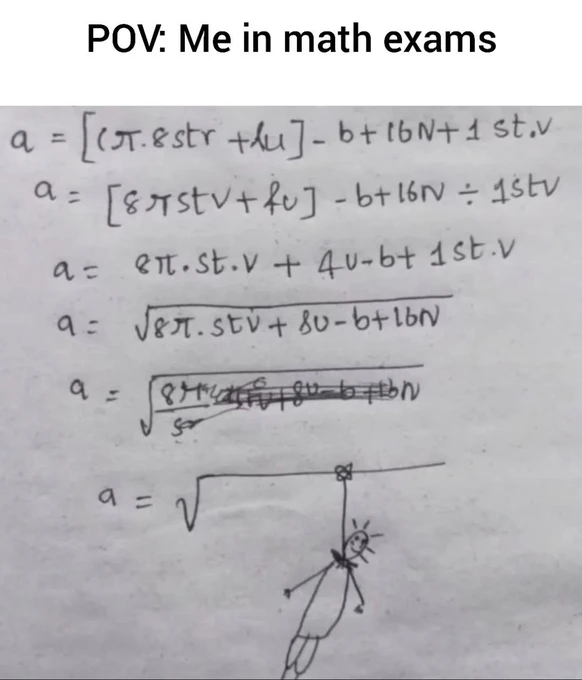 POV: Me in math exams
a = [(π.8str + fu] - b + 16N + 1 st.v
a = [8πstv + fu] - b + 16N ÷ 1stv
a = 8π.st.v + 4u - b + 1st.v
a = √8π.stv + 8u - b + 16N
a = √
a = √